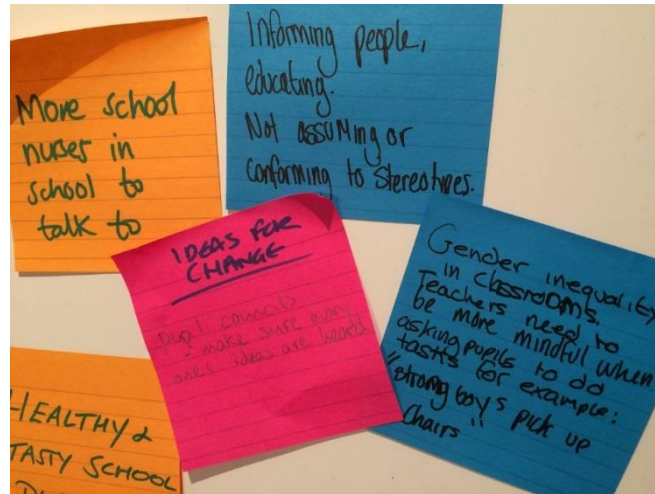 More school
nurses in
school to
talk to
Informing people,
educating.
Not assuming or
conforming to Stereotypes.
IDEAS FOR
CHANGE
pupil councils
- make sure every
ones ideas are heard
Gender inequality
in classrooms.
Teachers need to
be more mindful when
asking pupils to do
tasks for example:
"strong boys pick up
chairs"
HEALTHY &
TASTY SCHOOL